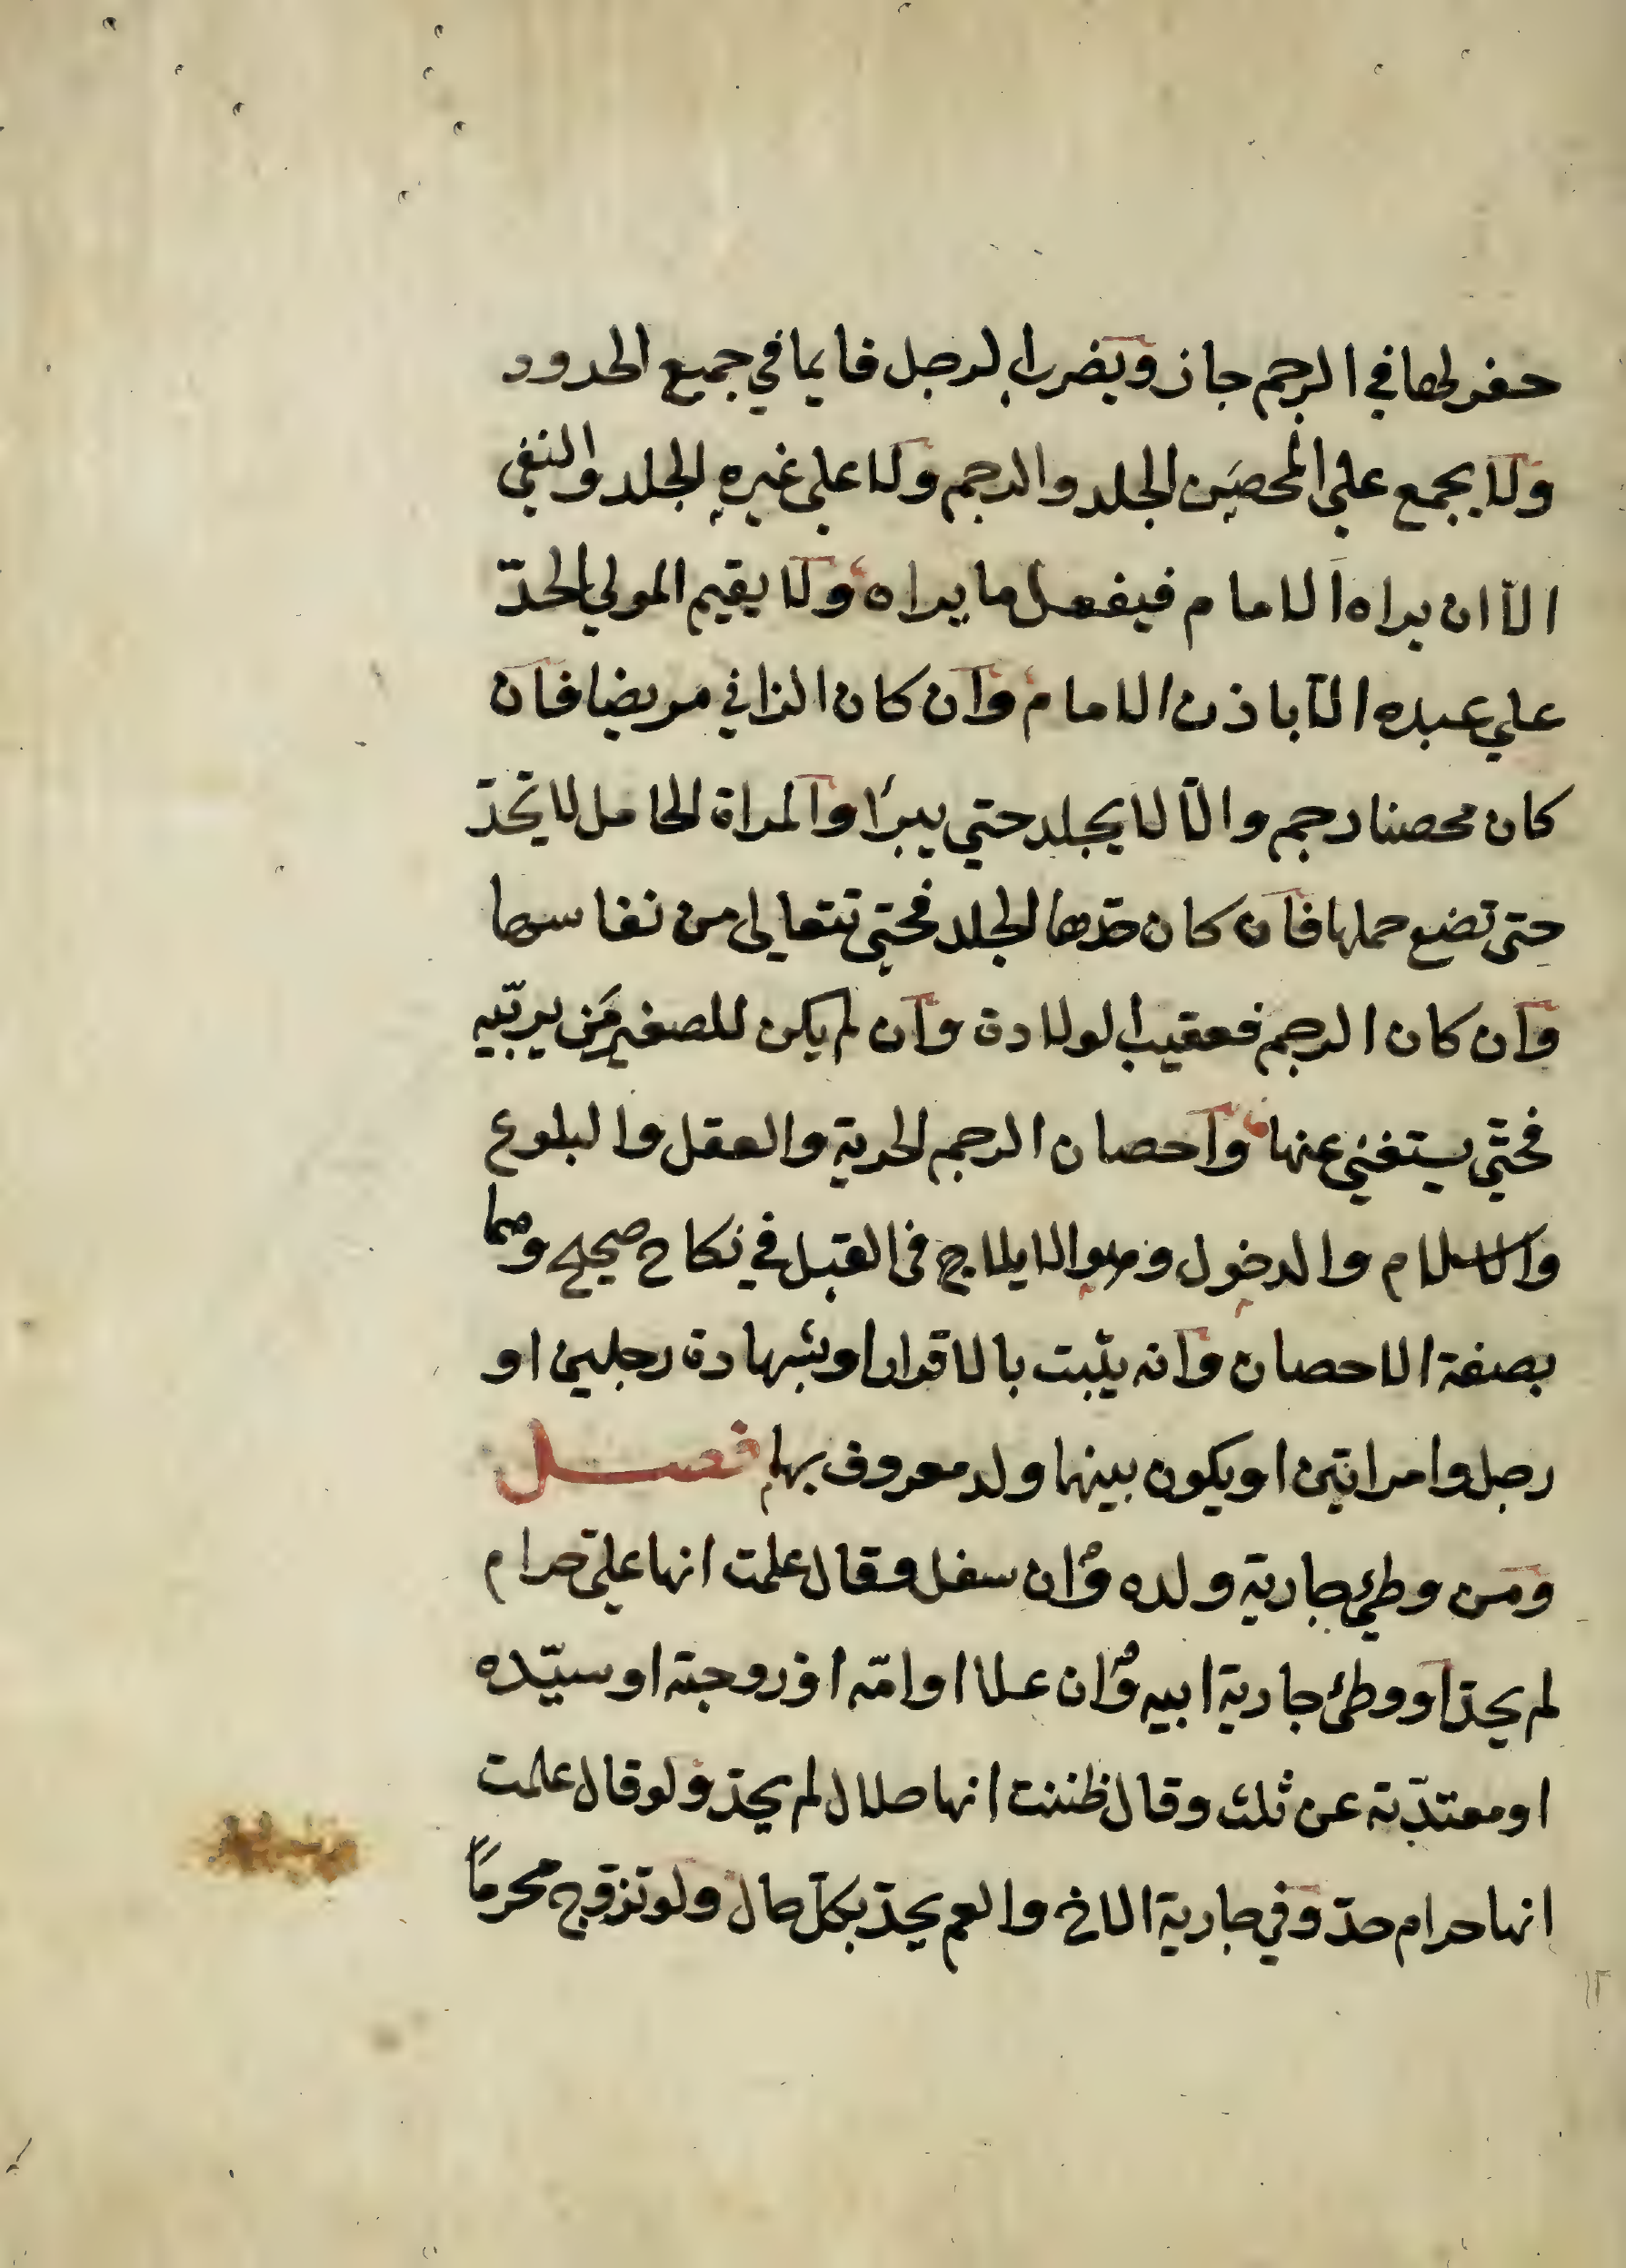 حفر لها في الرجم جاز ويضرب الرجل قايما في جميع الحدود
ولا يجمع على المحصن الجلد والرجم ولا على غيره الجلد والنفي
الاّ ان يراه الامام فيفعل ما يراه ولا يقيم المولي الحدّ
علي عبده الا باذن الامام وان كان الزاني مريضا فان
كان محصنا رجم والا لا يجلد حتي يبرا والمراة الحامل لا تحدّ
حتى تضع حملها فان كان حدّها الجلد فحتى تتعالى من نفاسها
وان كان الرجم فعقيب الولادة وان لم يكن للصغير من يربّيه
فحتّي يستغني عنها واحصان الرجم الحرية والعقل والبلوغ
والاسلام والدخول وهو الايلاج فى القبل في نكاح صحيح وهما
بصفة الاحصان وانه يثبت بالاقرار او بشهادة رجلين او
رجل وامراتين او يكون بينهما ولد معروف بهما فصل
ومن وطئ جارية ولده وان سفل وقال علمت انها عليّ حرام
لم يحدّ او وطئ جارية ابيه وان علا او امّه او زوجته او سيّده
او معتدّته عن ثلث وقال ظننت انها حلال لم يحدّ ولو قال علمت
انها حرام حدّ وفي جارية الاخ والعم يحدّ بكل حال ولو تزوّج محرماً